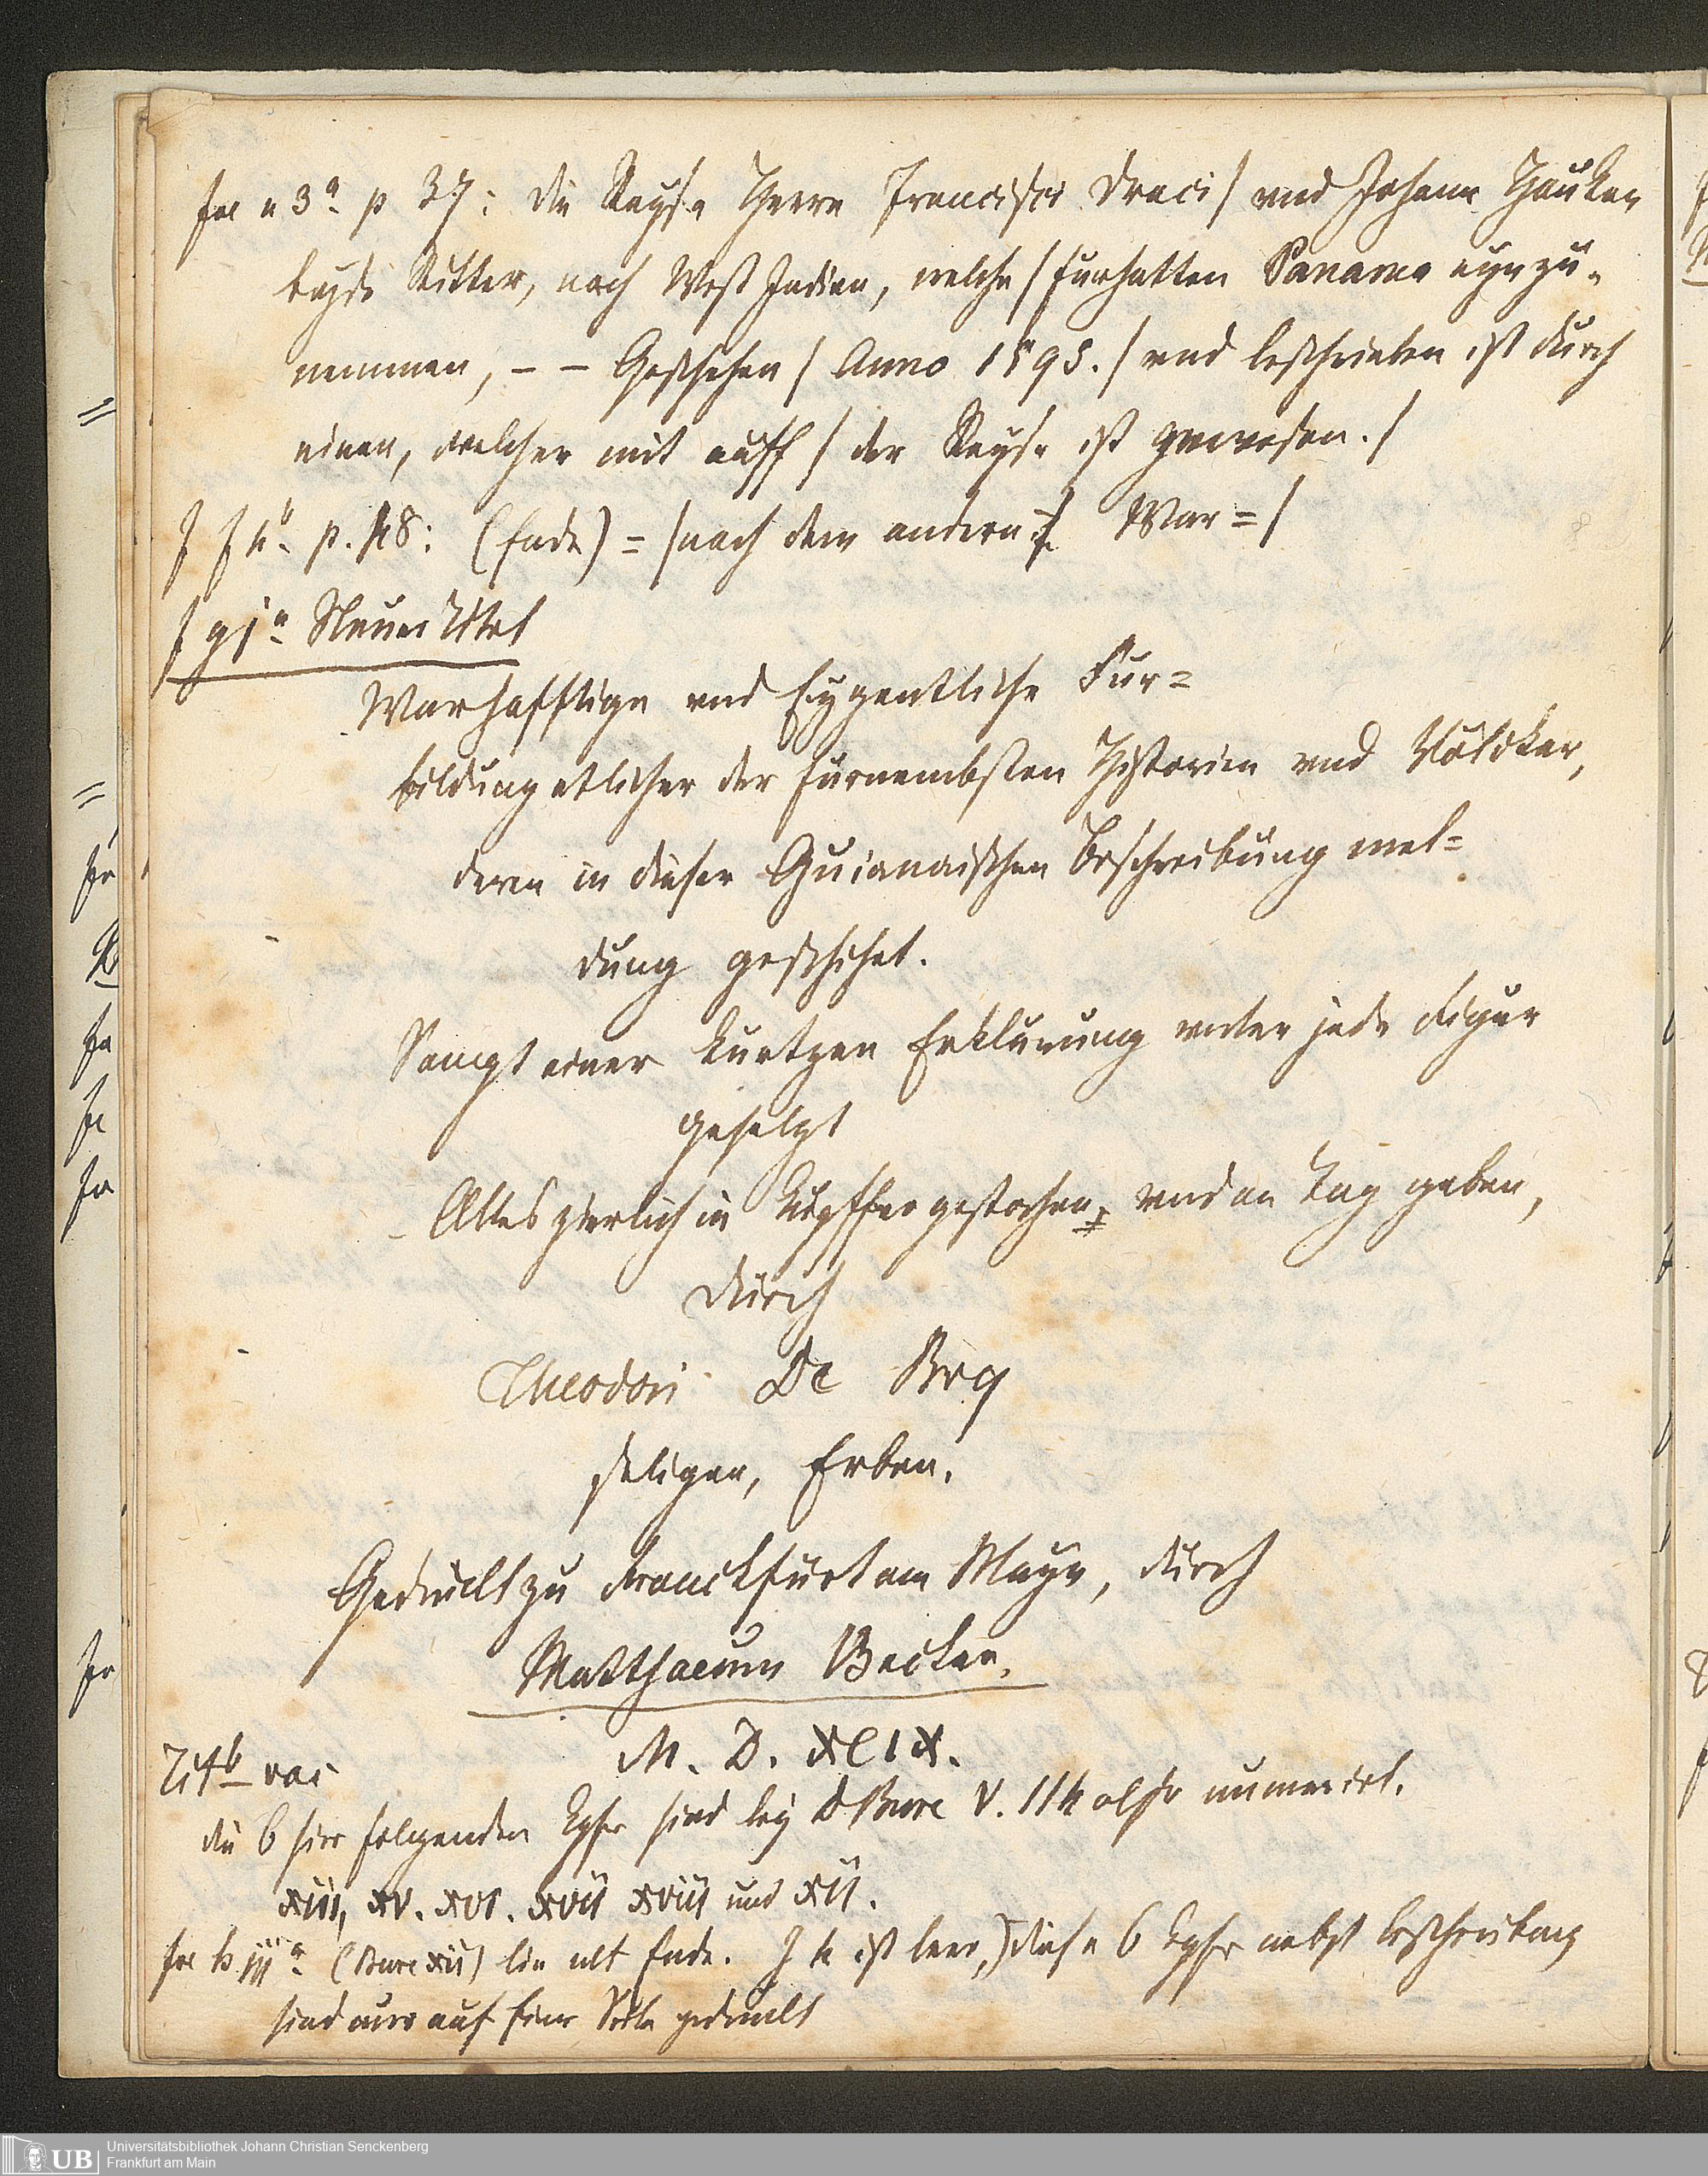 fol e 3ª p 37: die Reyse Herrn Francisci Draci / vnd Johann Hauken
beyde Ritter, nach West Indien, welche / fürhatten Panama eynzu-
nemmen, – – Geschehen / Anno 1595. / vnd beschrieben ist durch
einen, welcher mit auff / der Reyse ist gewesen. /
f f 4ᵇ p. 48: (Ende) = / nach dem andern War= /
f g jª Neuer Titel
Warhafftige vnd Eygentliche Für=
bildung etlicher der fürnembsten Historien vnd Völcker,
deren in dieser Guianaischen Beschreibung mel=
dung geschihet.
Sampt einer kurtzen Erklärung vnter jede Figur
gesetzt
Alles zierlich in Kupffer gestochen, vnd an Tag geben,
durch
Theodori De Bry
seligen, Erben.
Gedruckt zu Franckfurt am Mayn, durch
Matthaeum Becker.
M. D. XCIX.
Titᵇ vac
die 6 hier folgenden Kpfr sind bey D Bure V. 114 also numerirt.
XIII, XV. XVI. XVII XVIII und XII.
fol h iijª (Bure XII) lin ult Ende. f 4 ist leer,) diese 6 Kpfr nebst Beschreibung
sind nur auf Einer Seite gedruckt
UB
Universitätsbibliothek Johann Christian Senckenberg
Frankfurt am Main